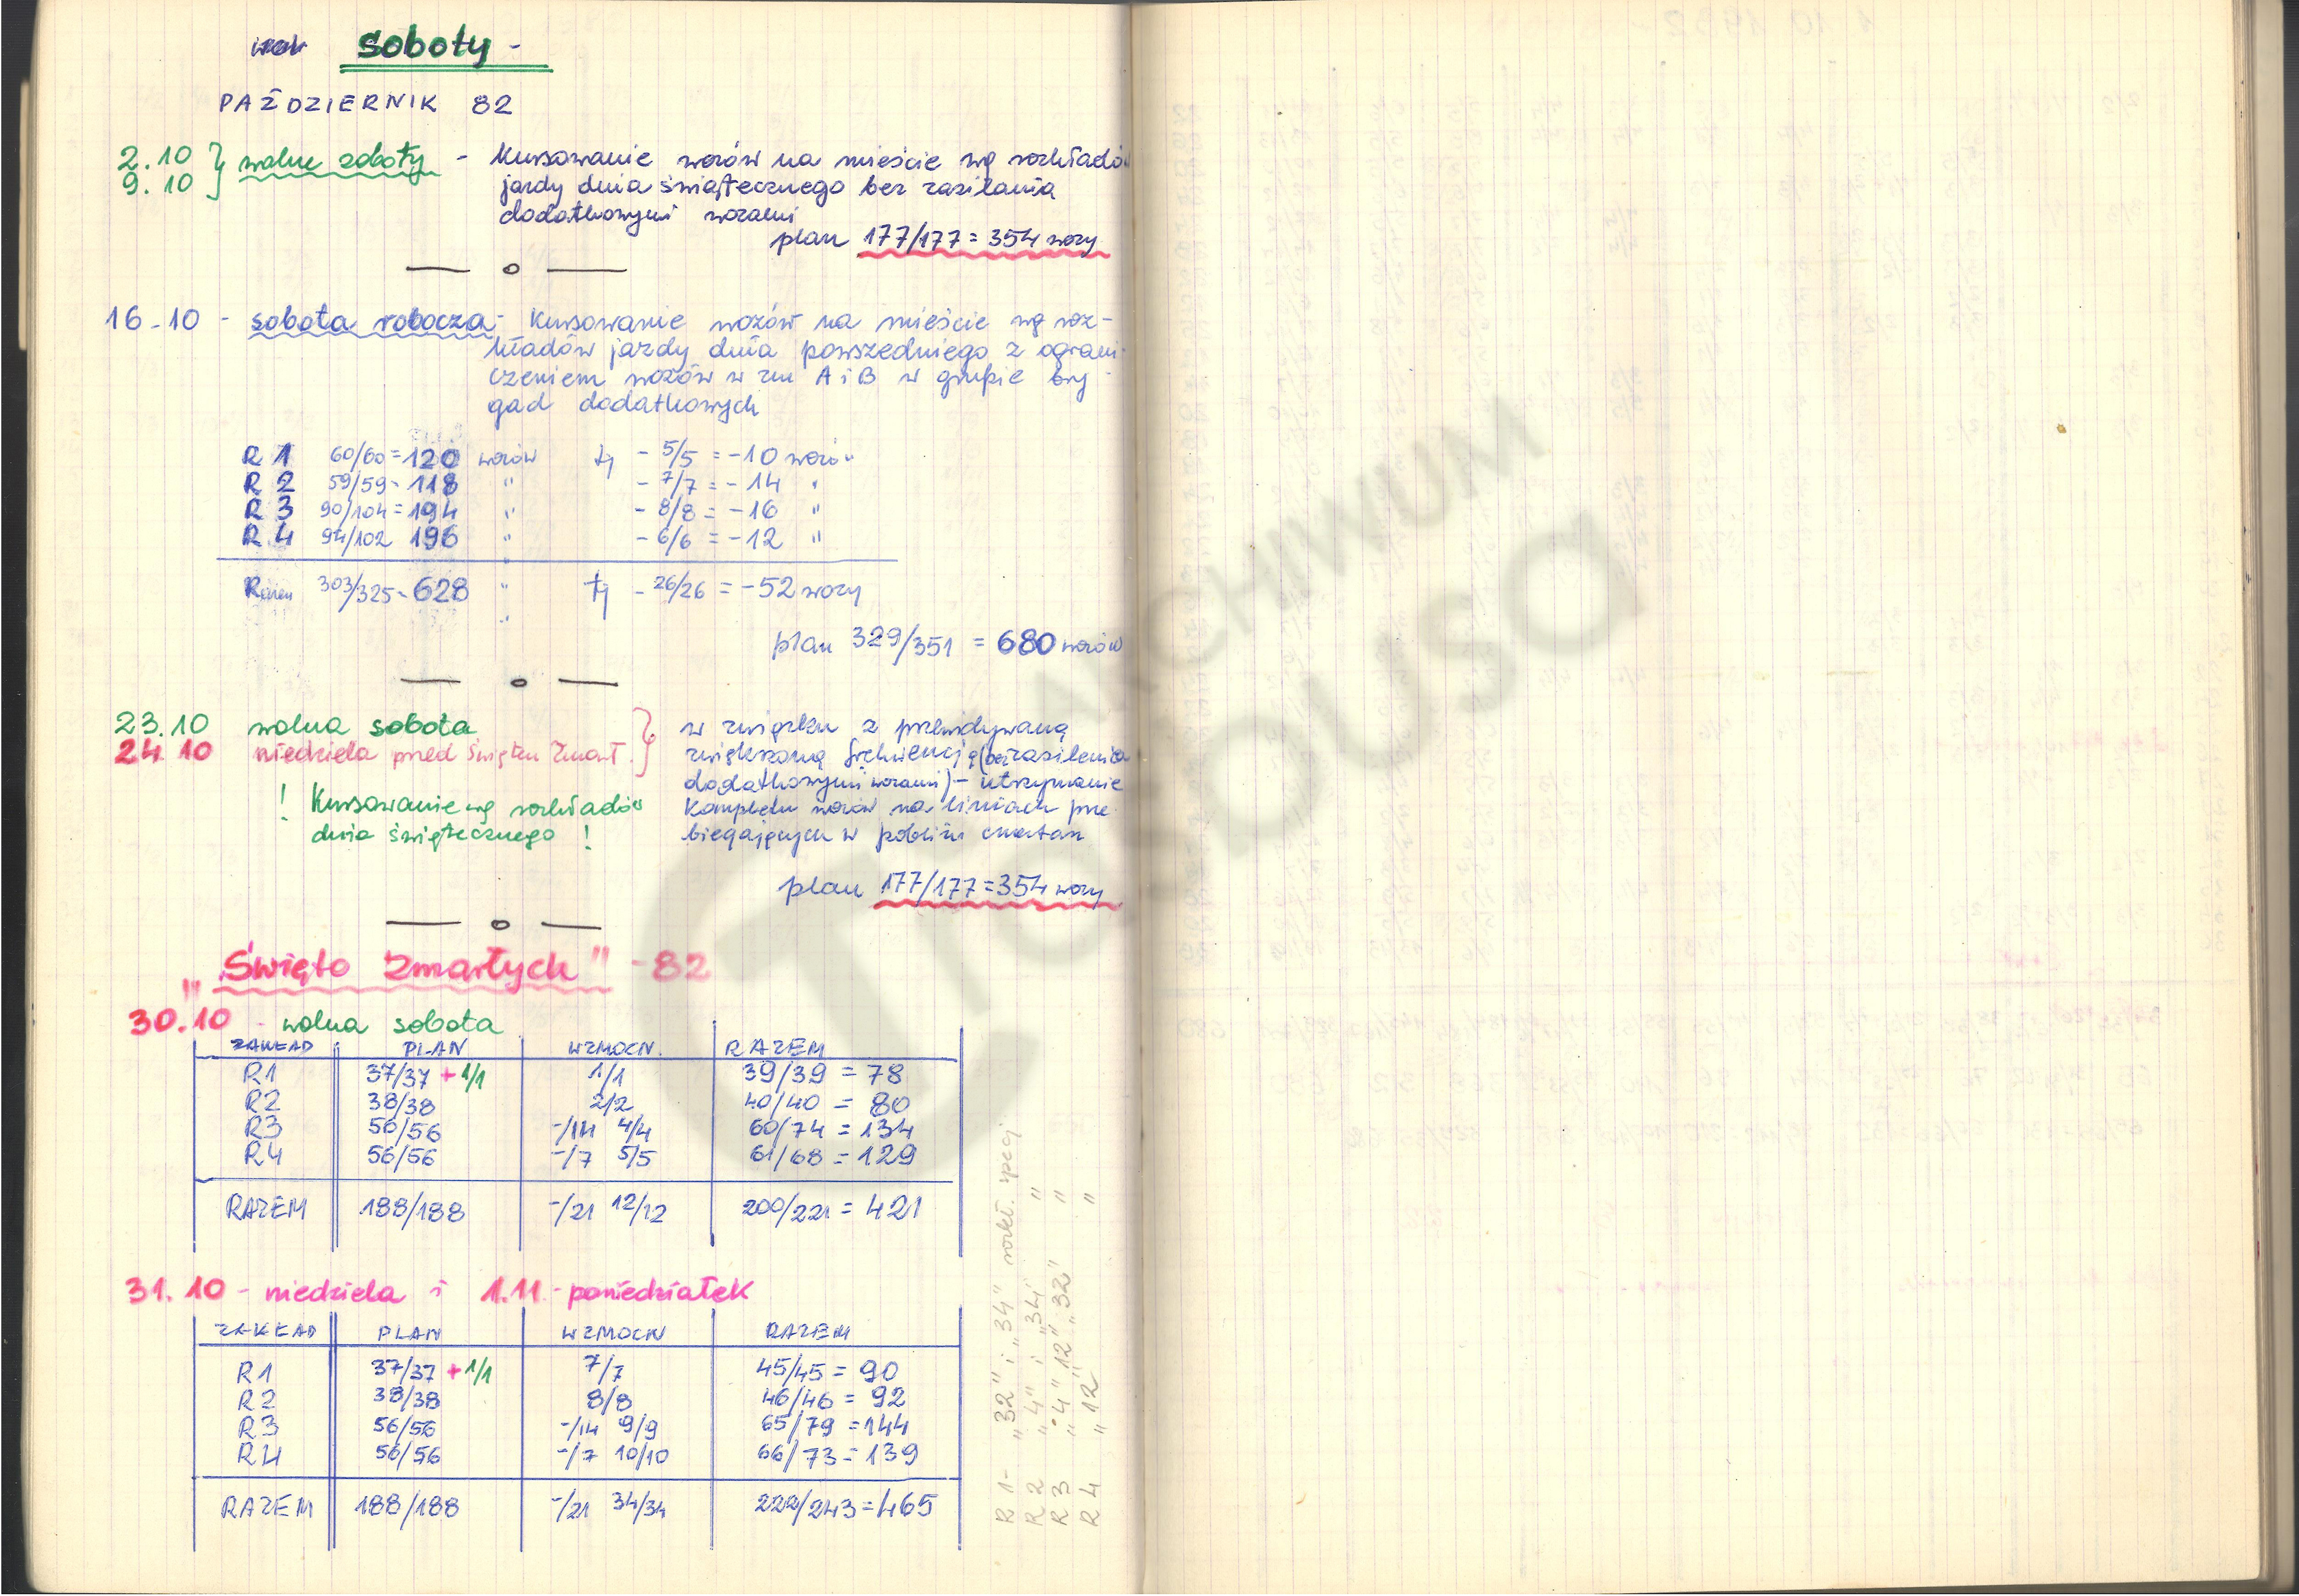 soboty -
PAŹDZIERNIK 82
2.10
9.10 } wolne soboty - Kursowanie wozów na mieście wg rozkładów
jazdy dnia świątecznego bez zasilania
dodatkowymi wozami
plan 177/177 = 354 wozy
16.10 - sobota robocza - Kursowanie wozów na mieście wg roz-
kładów jazdy dnia powszedniego z ograni-
czeniem wozów w zm A i B w grupie bry-
gad dodatkowych
R 1 60/60 = 120 wozów tj - 5/5 = -10 wozów
R 2 59/59 - 118 " - 7/7 = - 14 "
R 3 90/104 = 194 " - 8/8 = -16 "
R 4 94/102 196 " - 6/6 = -12 "
Razem 303/325 - 628 " tj - 26/26 = -52 wozy
plan 329/351 = 680 wozów
23.10 wolna sobota
24.10 niedziela przed Świętem Zmarł. }
! Kursowanie wg rozkładów
dnia świątecznego !
w związku z przewidywaną
zwiększoną frekwencją (bez zasilenia
dodatkowymi wozami) - utrzymanie
kompletu wozów na liniach prze-
biegających w pobliżu cmentarz
plan 177/177 = 354 wozy
"Święto Zmarłych" - 82
30.10 - wolna sobota
ZAKŁAD PLAN WZMOCN. RAZEM
R1 37/37 + 1/1 1/1 39/39 = 78
R2 38/38 2/2 40/40 = 80
R3 56/56 -/14 4/4 60/74 = 134
R4 56/56 -/7 5/5 61/68 = 129
RAZEM 188/188 -/21 12/12 200/221 = 421
31.10 - niedziela i 1.11 - poniedziałek
ZAKŁAD PLAN WZMOCN RAZEM
R1 37/37 + 1/1 7/7 45/45 = 90
R2 38/38 8/8 46/46 = 92
R3 56/56 -/14 9/9 65/79 = 144
R4 56/56 -/7 10/10 66/73 = 139
RAZEM 188/188 -/21 34/34 222/243 = 465
R 1 - "32" i "34" rozkł. specj
R 2 "4" i "34" "
R 3 "4" "12" "32" "
R 4 "12" "
ARCHIWUM